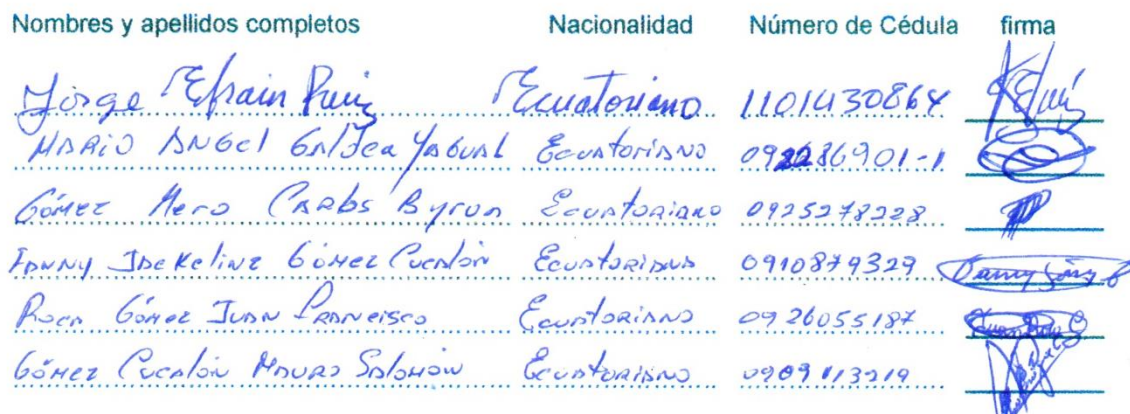 Nombres y apellidos completos Nacionalidad Número de Cédula firma
Jorge Efrain Ruiz Ecuatoriano 1101430864
MARIO ANGEL GALDEA YAGUAL Ecuatoriano 092286901-1
Gómez Mero Carlos Byron Ecuatoriano 0925278228
FANNY JACKELINE Gómez Cucalón Ecuatoriana 0910879329 Fanny Gómez C
Roca Gómez Juan Francisco Ecuatoriano 0926055187 Juan Roca G
Gómez Cucalón Mauro Salomón Ecuatoriano 0909113219